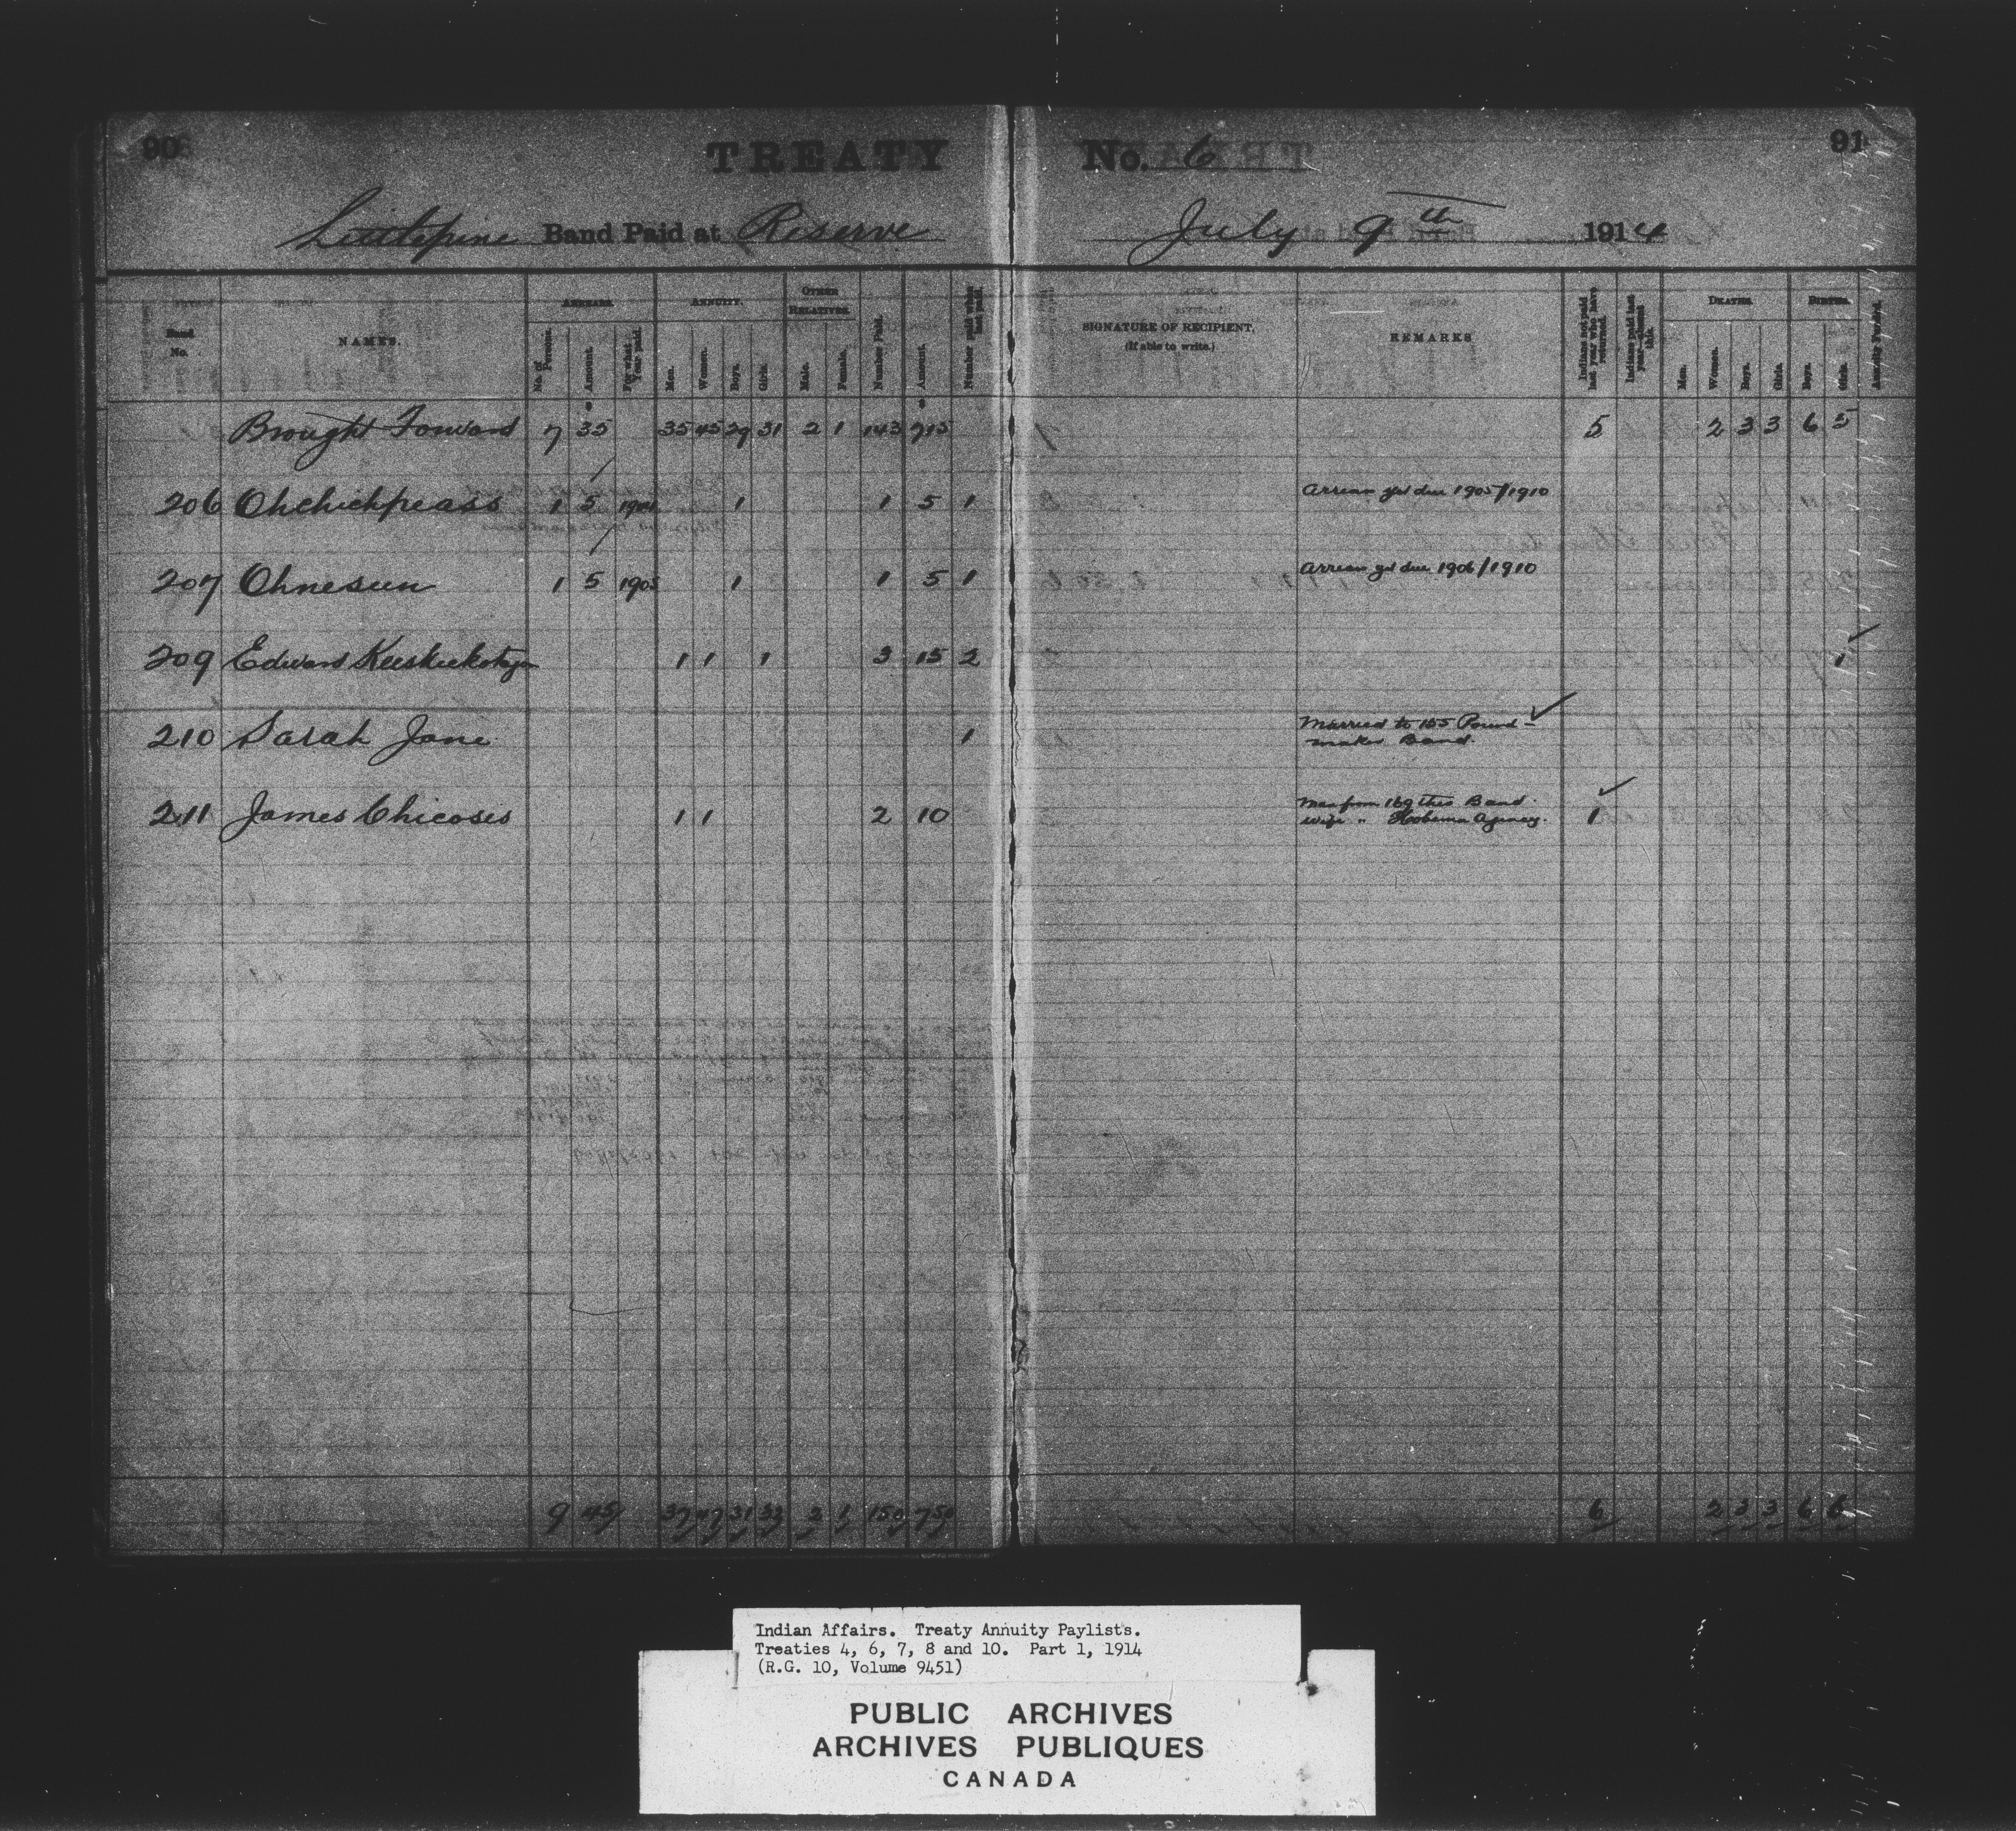 90 TREATY No. 6 91
Littlepine Band Paid at Reserve July 9th 1914
Band No. NAMES. ARREARS. ANNUITY. OTHER RELATIVES. Number Paid. Amount. Number paid when last paid. SIGNATURE OF RECIPIENT. (If able to write.) REMARKS Indians not paid last year who have returned. Indians paid last year—absent this. DEATHS. BIRTHS.
No. of Persons. Amount. For what Year paid. Men. Women. Boys. Girls. Male. Female. Men. Women. Boys. Girls. Boys. Girls.
Brought Forward 7 35 35 45 29 31 2 1 143 715 5 2 3 3 6 5
206 Ohchichpeass 1 5 1904 1 1 5 1 Arrears yet due 1905/1910
207 Ohnesun 1 5 1905 1 1 5 1 Arrears yet due 1906/1910
209 Edward 1 1 1 3 15 2 1
210 Sarah Jane 1 Married to 155 Pound-
maker Band.
211 James Chicosis 1 1 2 10 Man from 169 this Band. 1
Wife " Hobema Agency.
9 45 37 47 31 33 2 1 150 750 6 2 3 3 6 6
Indian Affairs. Treaty Annuity Paylists.
Treaties 4, 6, 7, 8 and 10. Part 1, 1914
(R.G. 10, Volume 9451)
PUBLIC ARCHIVES
ARCHIVES PUBLIQUES
CANADA